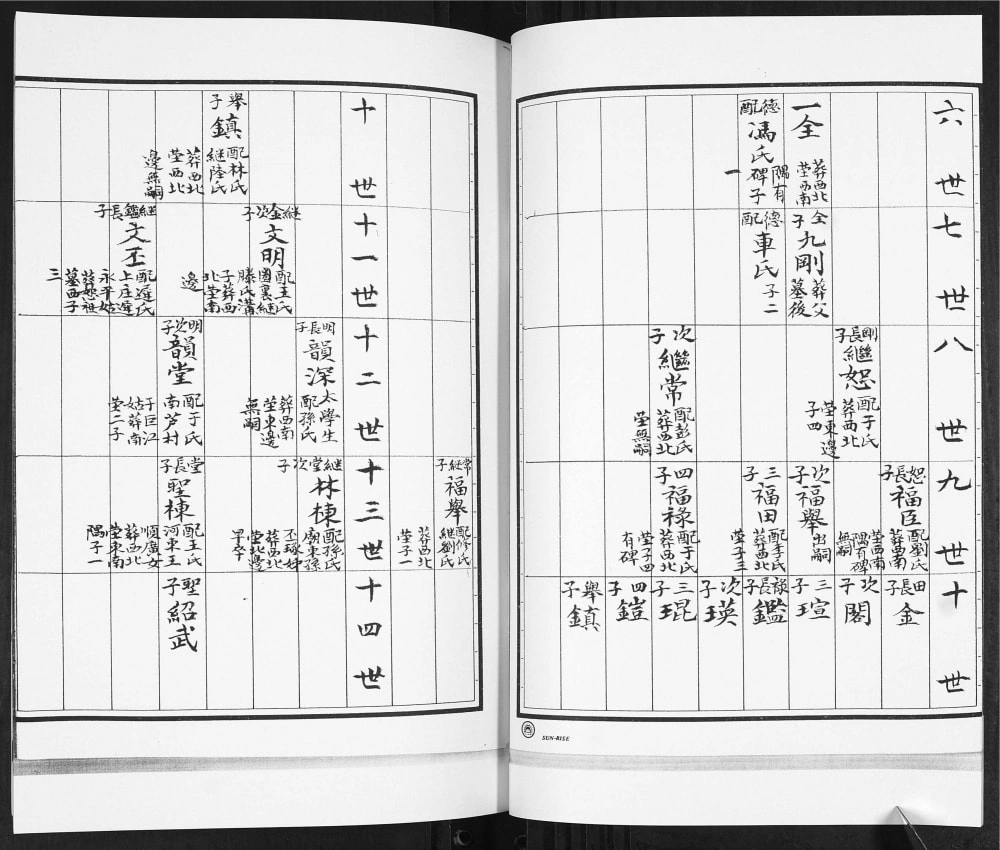 六世
一全
葬西北
塋西南
隅有
碑子
一
德配
馮氏
七世
全子
九剛
葬父
墓後
德配
車氏
子二
八世
剛長子
繼恕
配于氏
葬西北
塋東邊
子四
次子
繼常
配彭氏
葬西北
塋無嗣
九世
恕長子
福臣
配劉氏
葬西南
塋西南
隅有碑
無嗣
次子
福舉
出嗣
三子
福田
配李氏
葬西北
塋子三
四子
福祿
配于氏
葬西北
塋子四
有碑
十世
田長子
金
次子
閣
三子
瑄
祿長子
鑑
次子
瑛
三子
琨
四子
鎧
舉子
鎮
SUN-RISE
常継子
福舉
配修氏
継劉氏
葬西北
塋子一
十世
舉子
鎮
配林氏
継陸氏
葬西北
塋西北
邊無嗣
十一世
継金次子
文明
配王氏
圈裏継
滕氏溝
子葬西
北塋南
邊
継鑑長子
文丕
配遲氏
上庄遲
永平姑
葬恕祖
墓西子
三
十二世
明長子
韻深
太學生
配孫氏
葬西南
塋東邊
無嗣
明次子
韻堂
配于氏
南芦村
于巨江
姑葬南
塋二子
十三世
継堂次子
林棟
配孫氏
廟東孫
丕琢姊
葬西北
塋北邊
早卒
堂長子
聖棟
配王氏
河東王
順廣女
葬西北
塋東南
隅子一
十四世
聖子
紹武